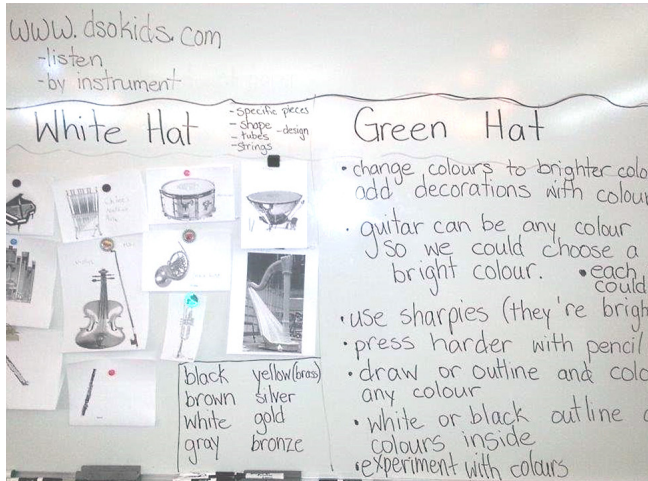 www.dsokids.com
-listen
-by instrument
White Hat
- specific pieces
- shape
- tubes
- design
-strings
black yellow(brass)
brown silver
white gold
gray bronze
Green Hat
• change colours to brighter
add decorations with
• guitar can be any colour
so we could choose a
bright colour.
• each
could
• use sharpies (they're
• press harder with pencil
• draw or outline and
any colour
• white or black outline
colours inside
• experiment with colours